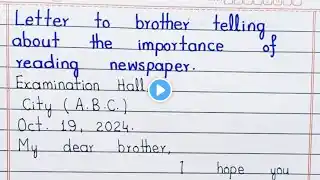 Letter to brother telling
about the importance of
reading newspaper.
Examination Hall,
City (A.B.C.)
Oct. 19, 2024.
My dear brother,
I hope you